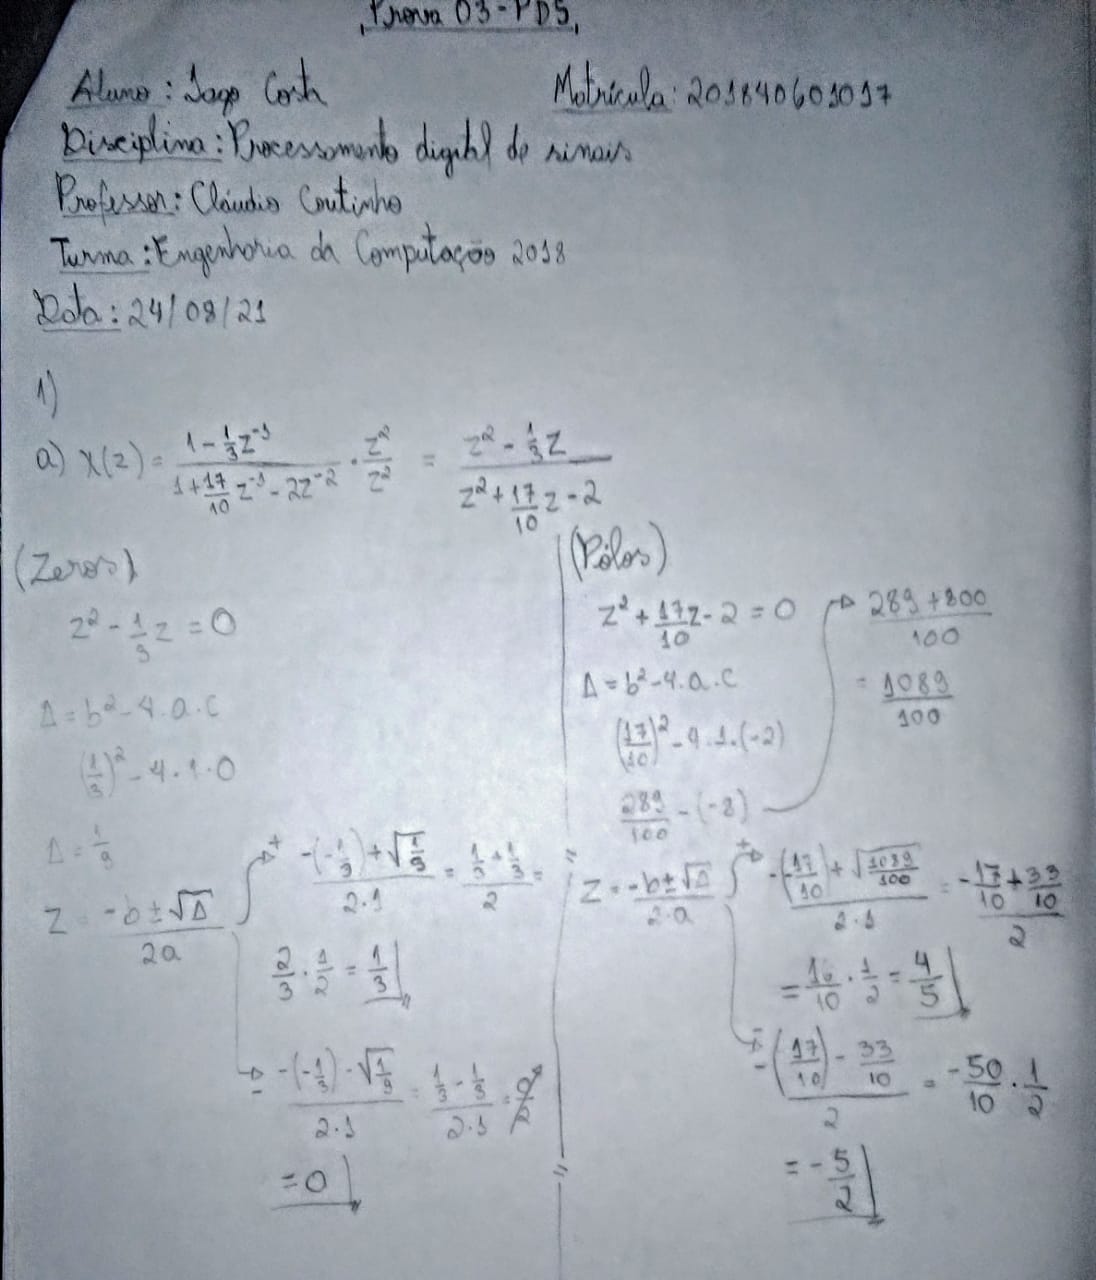 Prova 03-PDS
Aluno: Iago Costa Matrícula: 201840601017
Disciplina: Processamento digital de sinais
Professor: Cláudio Coutinho
Turma: Engenharia da Computação 2018
Data: 24/08/21
1)
a) X(z) = (1 - 1/3 z^-1)/(1 + 17/10 z^-1 - 2z^-2) · z^2/z^2 = (z^2 - 1/3 z)/(z^2 + 17/10 z - 2)
(Zeros)
z^2 - 1/3 z = 0
Δ = b^2 - 4.a.c
(1/3)^2 - 4.1.0
Δ = 1/9
z = (-b ± √Δ)/2a
+ (-(-1/3) + √(1/9))/2.1 = (1/3 + 1/3)/2 =
2/3 · 1/2 = 1/3
- (-(-1/3) - √(1/9))/2.1 = (1/3 - 1/3)/2.1 = 0/2
= 0
(Pólos)
z^2 + 17/10 z - 2 = 0
Δ = b^2 - 4.a.c
(17/10)^2 - 4.1.(-2)
289/100 - (-8)
(289 + 800)/100
= 1089/100
z = (-b ± √Δ)/2.a
+ (-(17/10) + √(1089/100))/2.1 = (-17/10 + 33/10)/2
= 16/10 · 1/2 = 4/5
- (-(17/10) - 33/10)/2 = -50/10 · 1/2
= -5/2